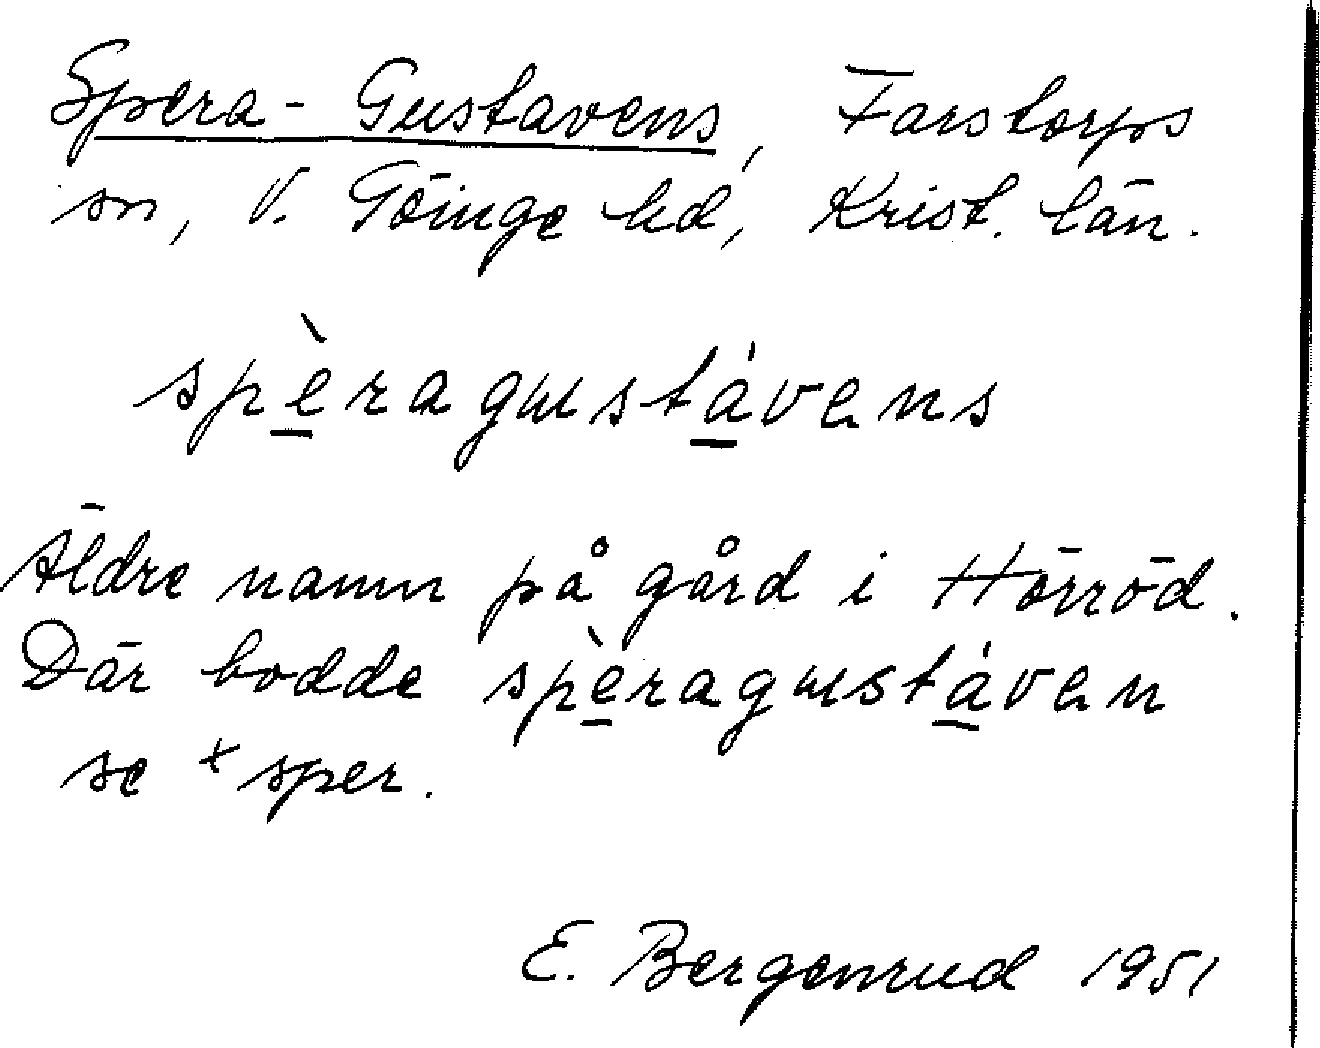 Spera-Gustavens, Farstorps
sn, V. Göinge hd, Krist. län.
spèragustávens
Äldre namn på gård i Hörröd.
Där bodde spèragustáven
se + sper.
E. Bergenrud 1951